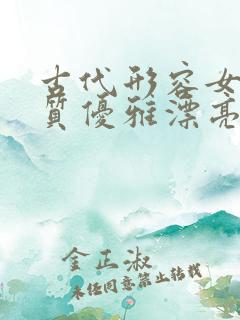 古代形容女
质优雅漂亮
金正淑
未经同意禁止转载